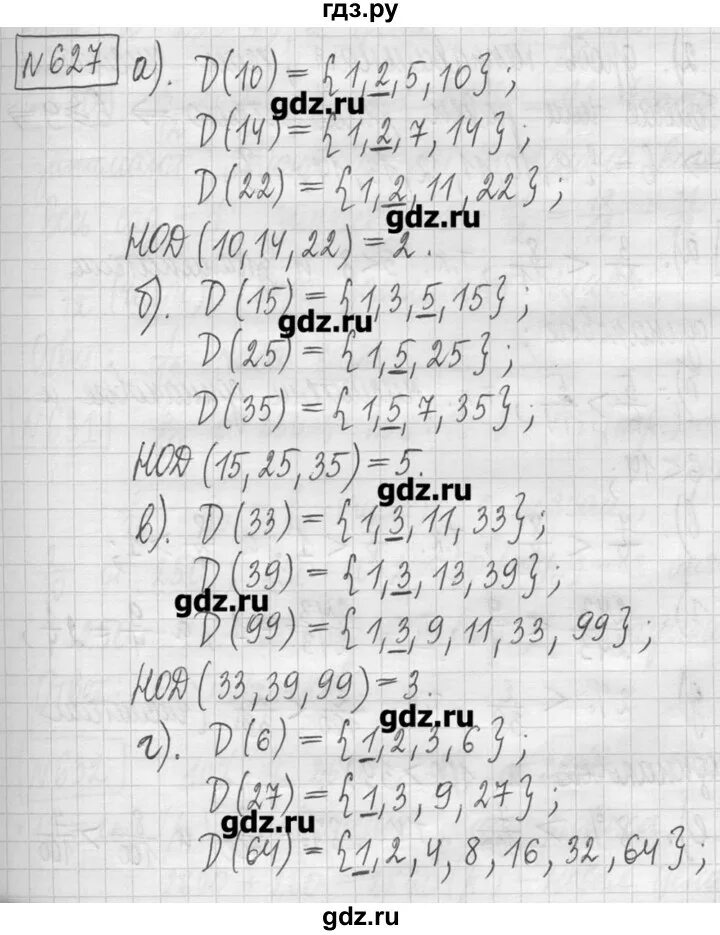 гдз.ру
№627 а). D(10) = {1, 2, 5, 10};
gdz.ru
D(14) = {1, 2, 7, 14};
D(22) = {1, 2, 11, 22};
gdz.ru
НОД(10, 14, 22) = 2.
б). D(15) = {1, 3, 5, 15};
gdz.ru
D(25) = {1, 5, 25};
D(35) = {1, 5, 7, 35};
НОД(15, 25, 35) = 5.
gdz.ru
в). D(33) = {1, 3, 11, 33};
D(39) = {1, 3, 13, 39};
gdz.ru
D(99) = {1, 3, 9, 11, 33, 99};
НОД(33, 39, 99) = 3.
gdz.ru
г). D(6) = {1, 2, 3, 6};
D(27) = {1, 3, 9, 27};
gdz.ru
D(64) = {1, 2, 4, 8, 16, 32, 64};
gdz.ru